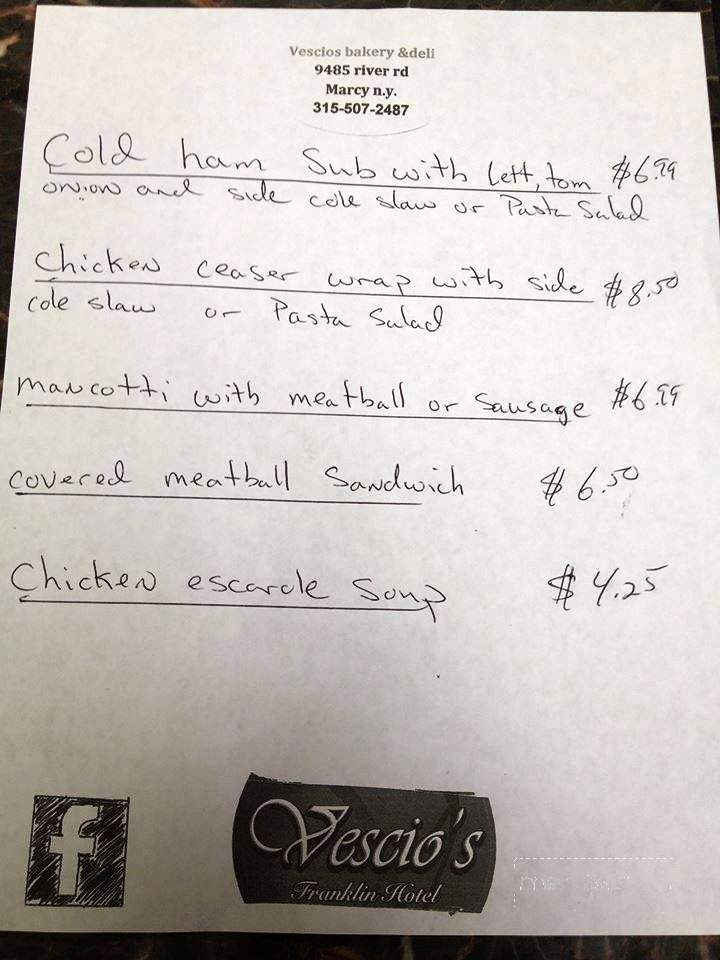 Vescios bakery &deli
9485 river rd
Marcy n.y.
315-507-2487
Cold ham Sub with Lett, tom $6.99
onion and side cole slaw or Pasta Salad
Chicken ceaser wrap with side $8.50
cole slaw or Pasta Salad
mancotti with meatball or Sausage $6.99
covered meatball Sandwich $6.50
Chicken escarole Soup $4.25
f
Vescio's
Franklin Hotel